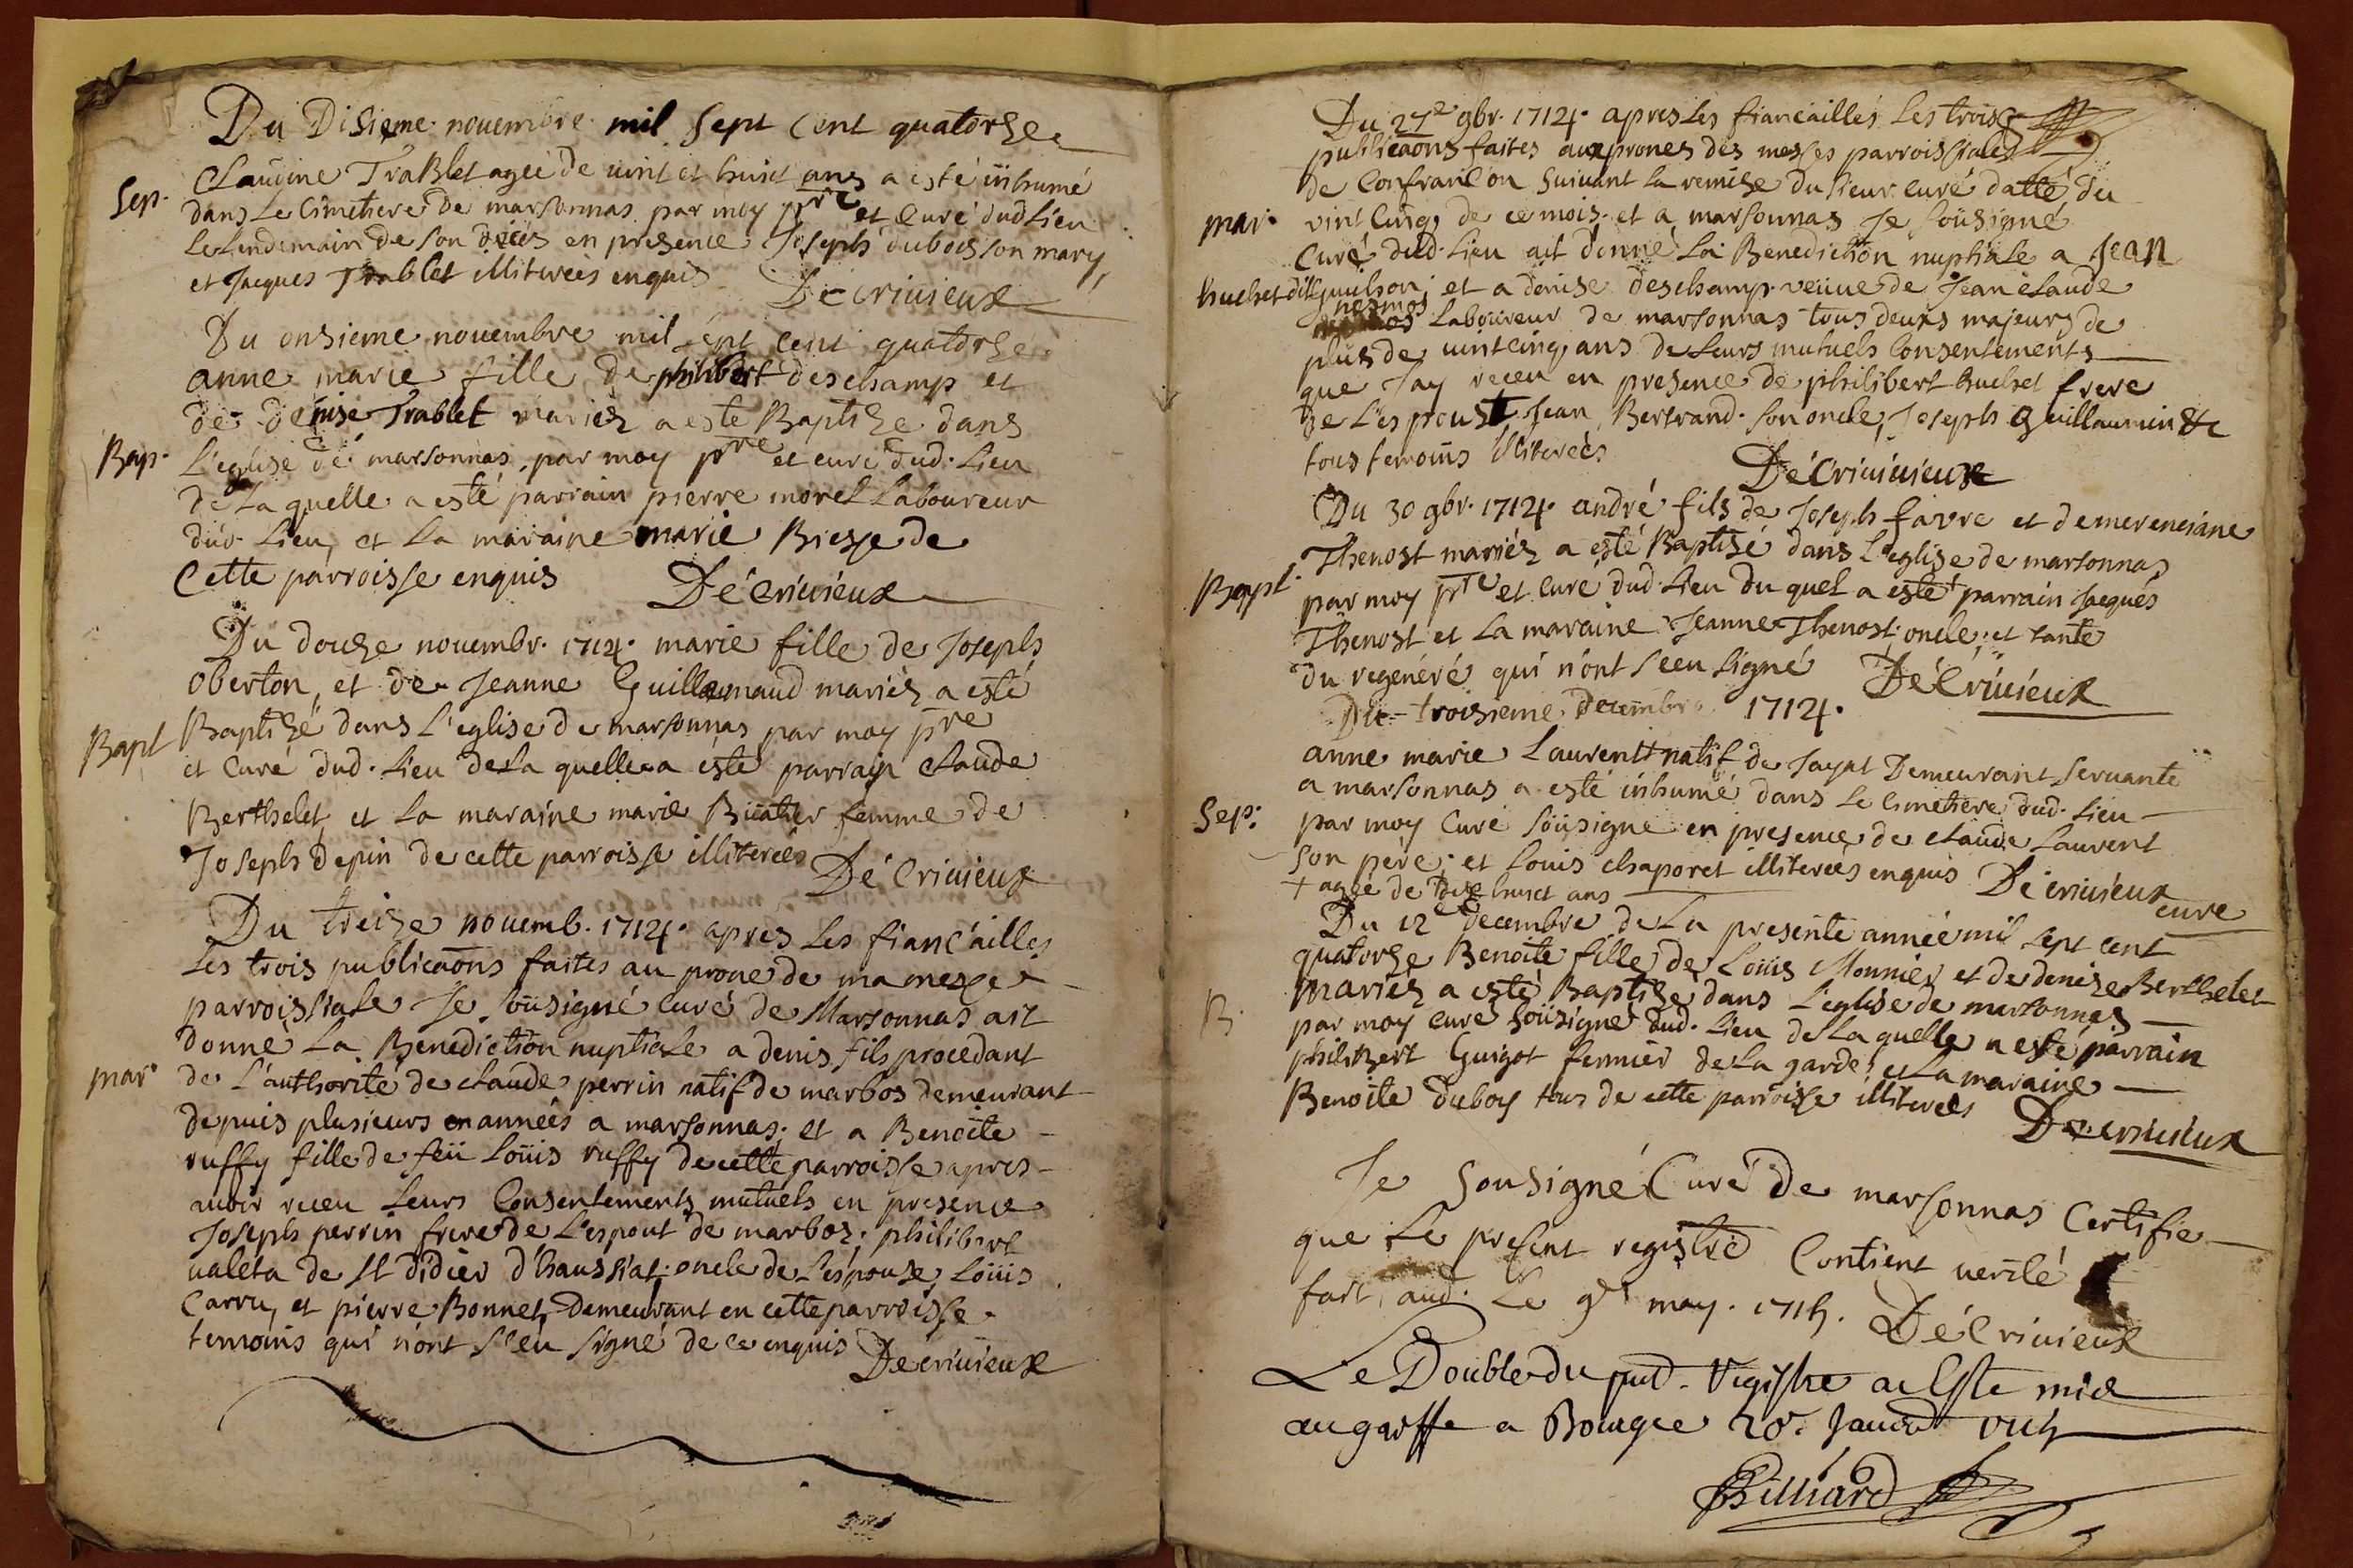 Du Disieme novembre mil sept Cent quatorse
Sep.
Claudine Trablet agée de vint et huict ans a esté inhumé
dans Le Cimetiere de marsonnas par moy pre et Curé dud Lieu
Le Lendemain de son deces en presence Joseph dubois son mary
et Jacques Trablet illiterees enquis Décrivieux
Du onsieme novembre mil sept cent quatorse
anne marie fille de philibert deschamp et
de denise Trablet mariéz a esté Baptisé dans
Bap. L'eglise de marsonnas par moy pre et curé dud. Lieu
de La quelle a esté parrain pierre morel Laboureur
dud. Lieu, et La maraine marie de
Cette parroisse enquis Décrivieux
Du douse novembr. 1714. marie fille de Joseph
oberton, et de Jeanne Guillemaud mariéz a esté
Baptisé dans L'eglise de marsonnas par moy pre
Bapt
et Curé dud. Lieu de La quelle a esté parrain claude
Berthelet et La maraine marie femme de
Joseph depin de cette parroisse illiterées Décrivieux
Du treise novemb. 1714. apres Les fiancailles
Les trois publicaons faites au prone de ma messe
parroissiale Je soüsigné curé de Marsonnas ait
donné La Benediction nuptiale a denis fils procedant
mar. de L'authorité de claude perrin natif de marbos demeurant
depuis plusieurs années a marsonnas; et a Benoite
ruffy fille de feü Loüis ruffy de cette parroisse apres
avoir receu Leurs Consentements mutuels en presence
Joseph perrin frere de L'espout de marboz. philibert
valeta de st didier d'haussiat oncle de L'espouse, Loüis
Carru, et pierre Bonnet, Demeurant en cette parroisse
temoins qui n'ont s'eu signé de ce enquis Décrivieux
Du 27e 9br. 1714. apres Les fiancailles Les trois
publicaons faites aux prones des messes parroissiales
de Confrançon suivant La remise du sieur curé datté du
mar. vint cinq, de ce mois. et a marsonnas Je soüsigné
Curé dud. Lieu ait donné La Benediction nuptiale a Jean
huchet dit guichon; et a denise deschamp veüve de Jean claude
nesmos
Laboureur de marsonnas tous deux majeurs de
plus de vintcinq, ans de Leurs mutuels Consentements
que Jay receu en presence de philibert huchet frere
de L'espoust Jean Bertrand. son oncle, Joseph Guillaumin &c
tous temoins illiterées Décrivieux
Du 30 9br. 1714. andré fils de Joseph favre et de merenciane
Thenost mariéz a esté Baptisé dans L'eglise de marsonnas
Bapt. par moy pre et Curé dud. Lieu du quel a esté parrain Jacques
Thenost et La maraine Jeanne Thenost oncle; et tante
du regenéré qui n'ont sceu signé Décrivieux
Du troisieme Decembre 1714.
anne marie Laurent + natif de Jayat Demeurant servante
a marsonnas a esté inhumé dans Le Cimetiere dud. Lieu
Sep. par moy Curé soüsigné en presence de claude Laurent
son père; et Louis chaporet illiterées enquis Décrivieux
+ agée de dixe huict ans
curé
Du 12e decembre de La presente année mil sept cent
quatorse Benoite fille de Loüis Monnier et de denise Berthelet
mariéz a esté Baptisé dans L'eglise de marsonnas
B. par moy curé soüsigné dud. Lieu de La quelle a esté parrain
philibert Guigot fermier de La garde; et La maraine
Benoite duboy tous de cette parroisse illiterées Décrivieux
Je sousigné Curé de marsonnas Certifie
que Le present registre Contient verité
fait aud. Le 9e may. 1715. Décrivieux
Le Double du pnt. Registre a Este mis
au greffe a Bourg ce 20.
Billiard